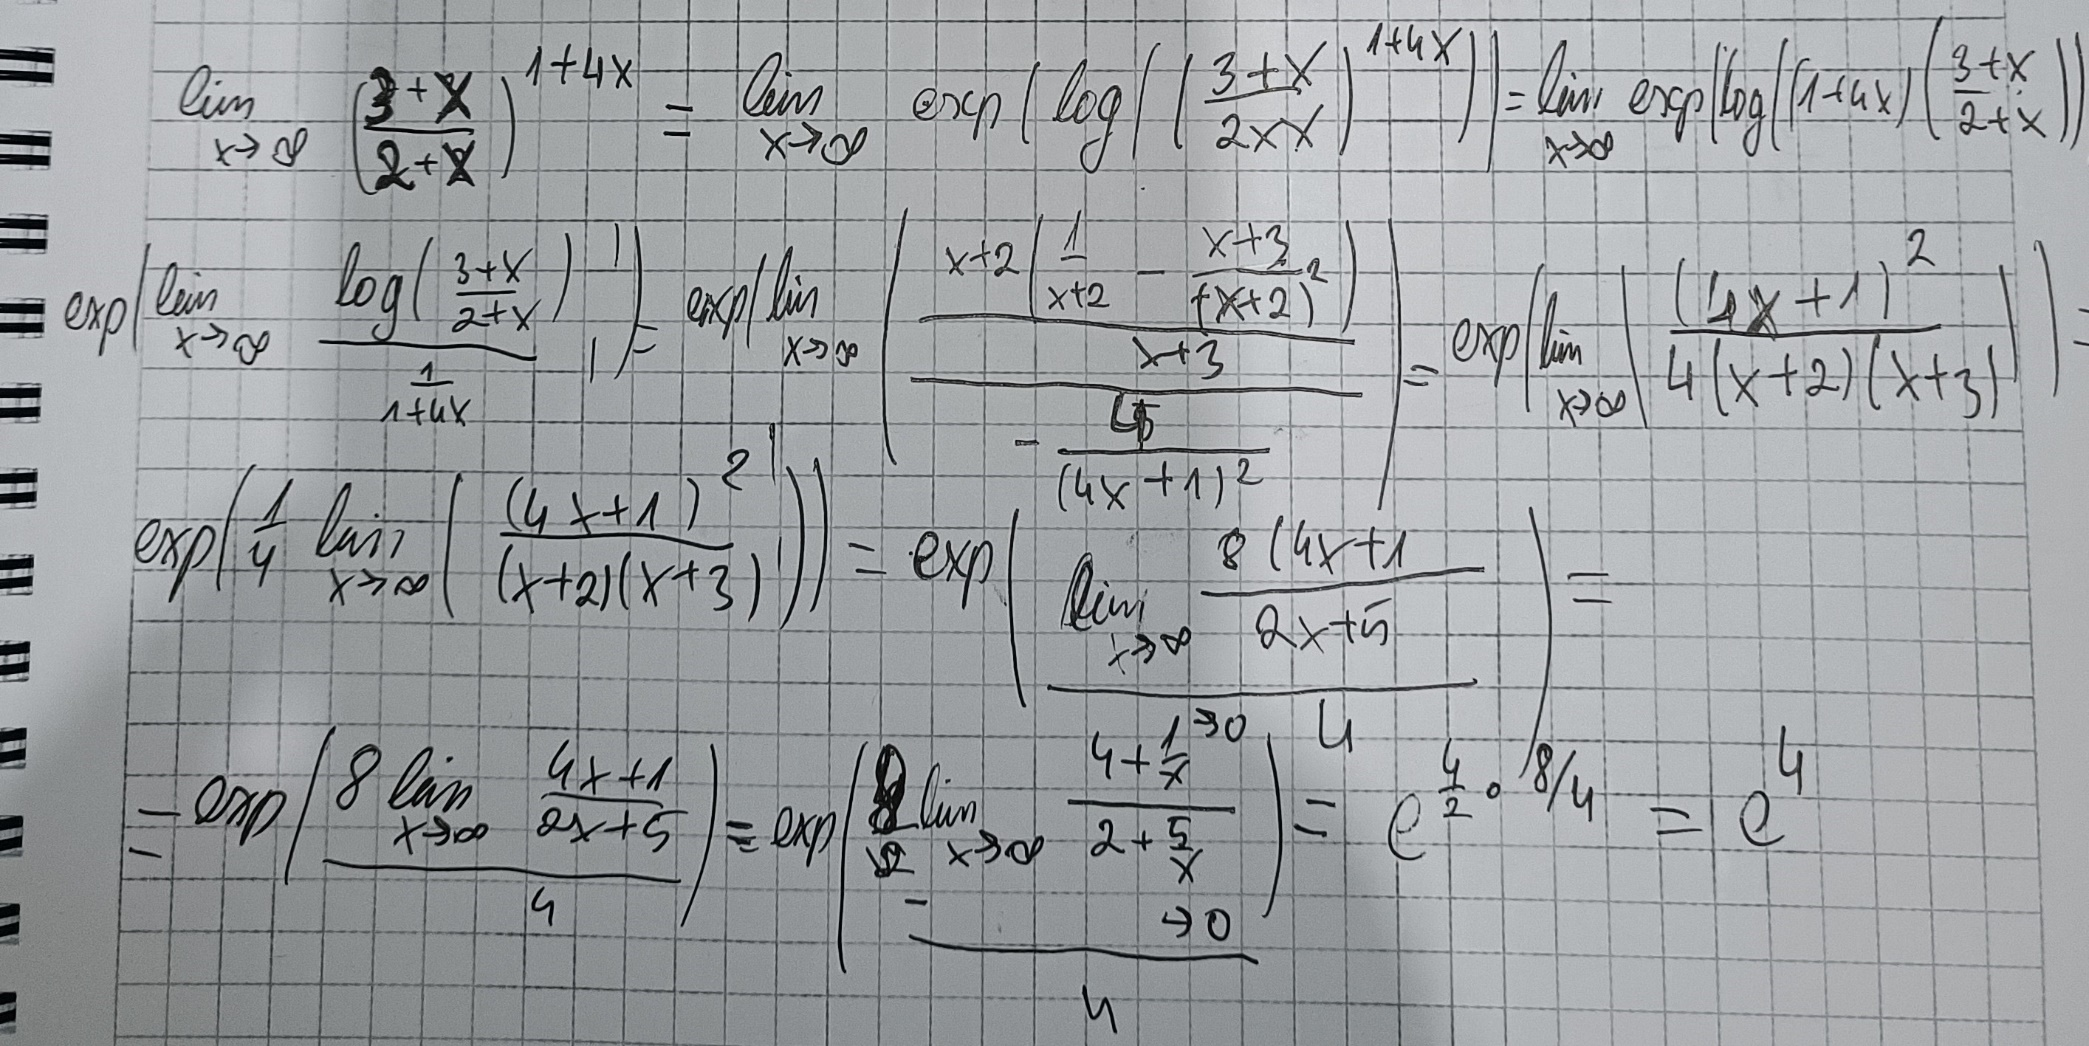 lim x→∞ ((3+x)/(2+x))^(1+4x) = lim x→∞ exp(log(((3+x)/(2xx))^(1+4x))) = lim x→∞ exp(log((1+4x)((3+x)/(2+x))
exp(lim x→∞ (log((3+x)/(2+x))'/(1/(1+4x))')= exp(lim x→∞ (((x+2(1/(x+2) - (x+3)/(x+2)^2))/(x+3))/(-4/(4x+1)^2)) = exp(lim x→∞ ((4x+1)^2/(4(x+2)(x+3)))) =
exp(1/4 lim x→∞ ((4x+1)^2'/((x+2)(x+3))')) = exp((lim x→∞ (8(4x+1)/(2x+5))/4) =
= exp((8 lim x→∞ (4x+1)/(2x+5))/4) = exp((8 lim x→∞ (4+1/x→0)/(2+5/x→0))/4) = e^(4/2 · 8/4) = e^4